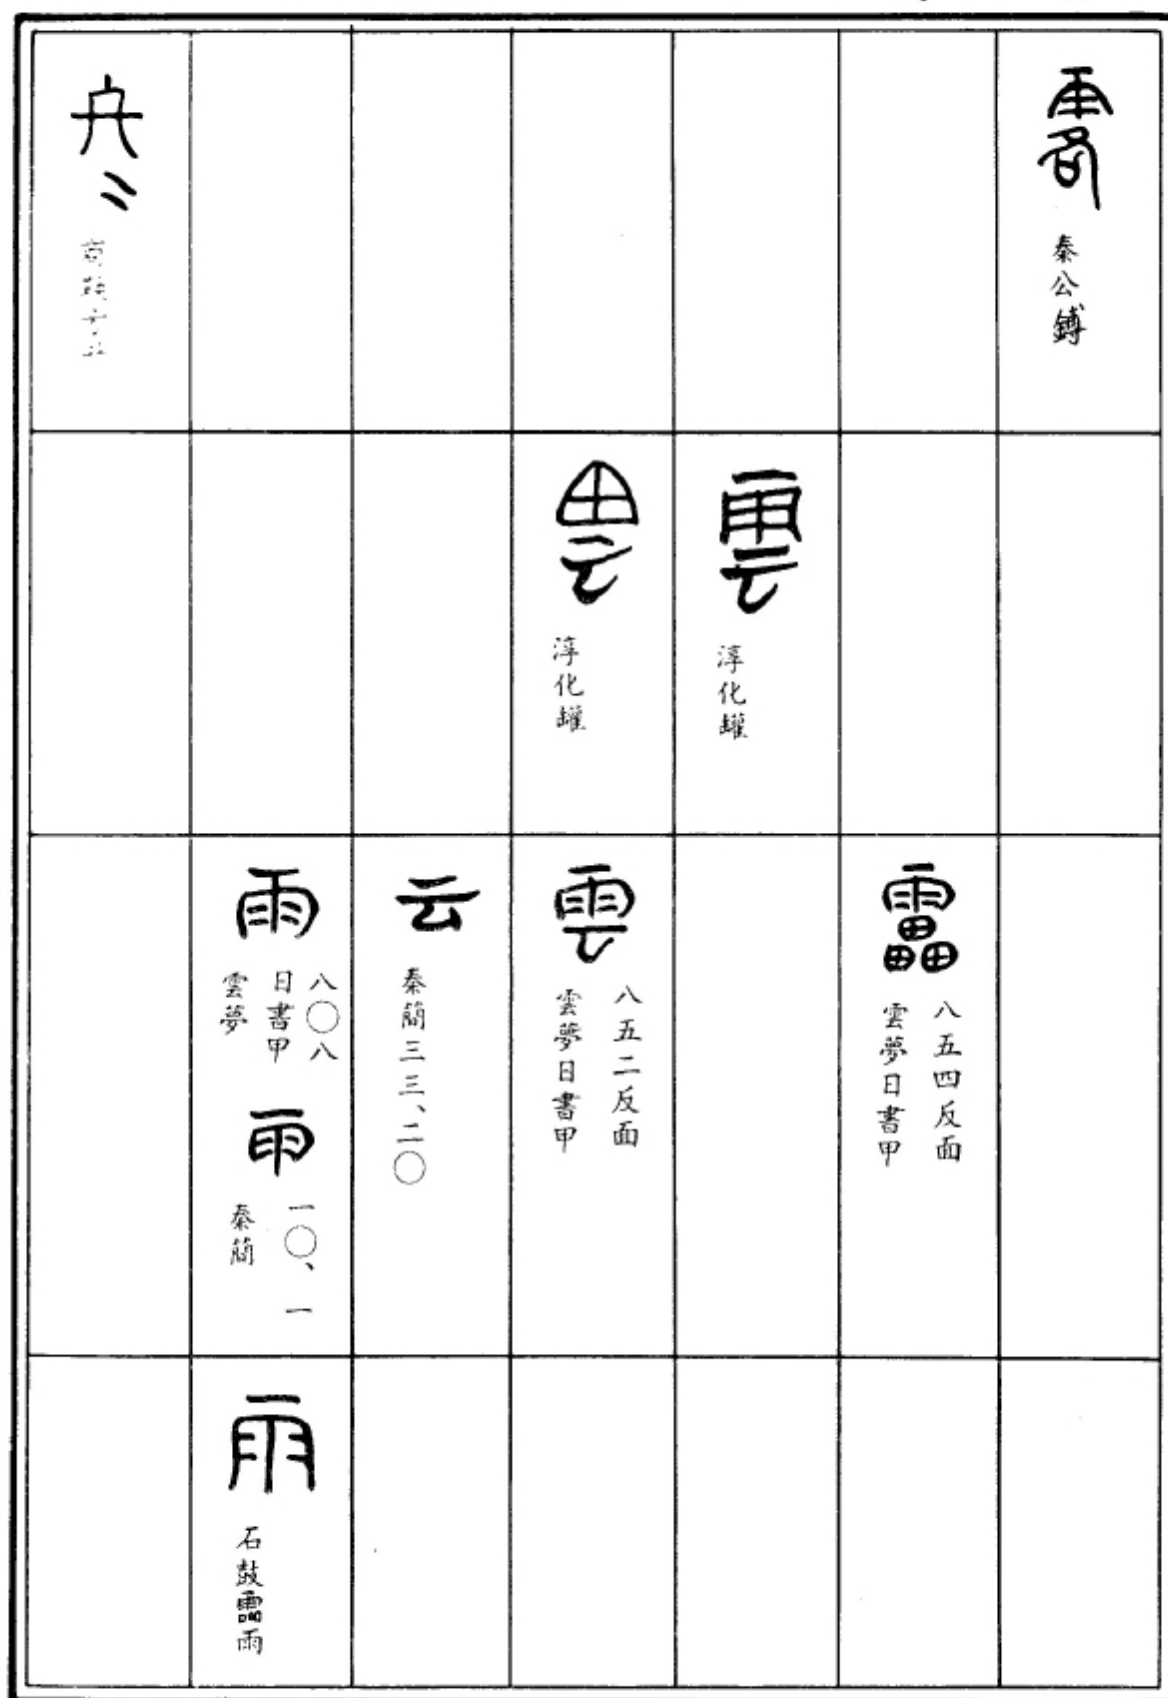 䨣
秦公鎛
靁
雲夢日書甲
八五四反面
雲
淳化罐
雲
淳化罐
雲
雲夢日書甲
八五二反面
云
秦簡三三、二〇
雨
雲夢
日書甲
八〇八
雨
秦簡
一〇、一
雨
石鼓霝雨